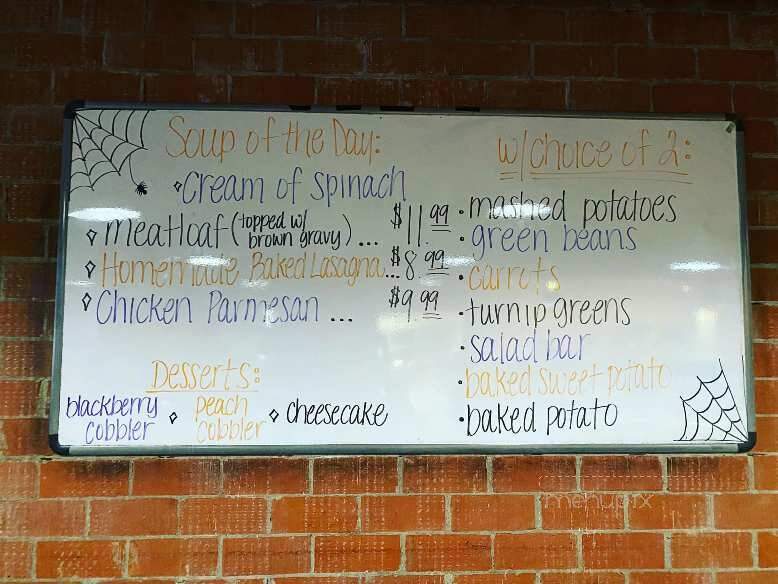 Soup of the Day:
Cream of spinach
meatloaf (topped w/ brown gravy) ... $11.99
Homemade Baked Lasagna... $8.99
Chicken Parmesan ... $9.99
Desserts:
blackberry cobbler
peach cobbler
cheesecake
w/choice of 2:
mashed potatoes
green beans
carrots
turnip greens
salad bar
baked sweet potato
baked potato
menupix